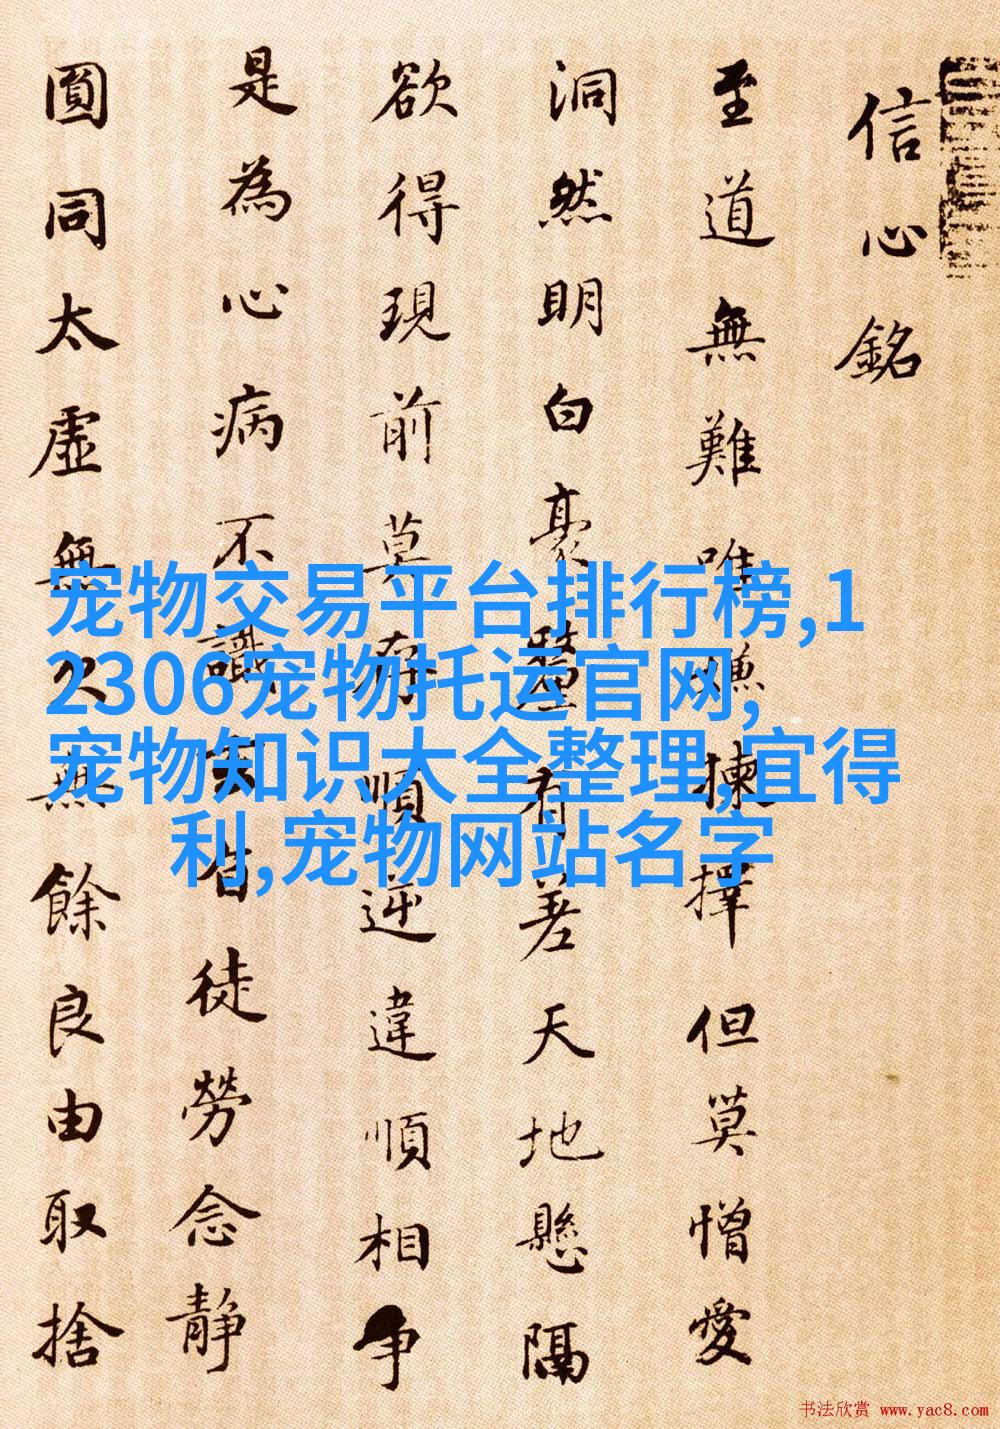 信心銘
至道無難唯嫌揀擇但莫憎愛
洞然明白豪釐有差天地懸隔
欲得現前莫存順逆違順相争
是為心病不識玄旨徒勞念静
圓同太虛無欠無餘良由取捨
宠物交易平台排行榜,1
2306宠物托运官网,
宠物知识大全整理,宜得
利,宠物网站名字
书法欣赏 www.yac8.com